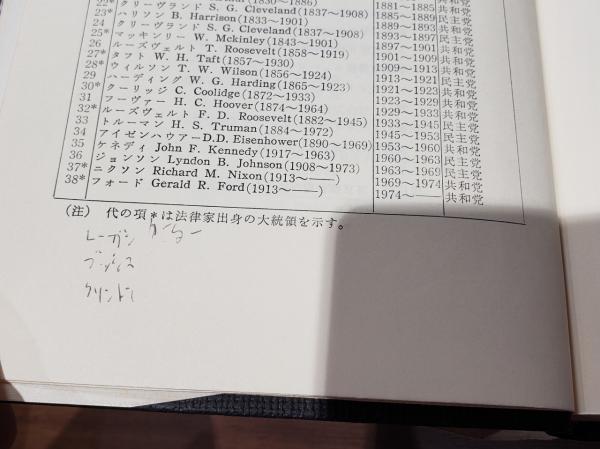 23* ハリソン B. Harrison(1833〜1901) 1889〜1893 共和党
24 クリーヴランド S. G. Cleveland(1837〜1908) 1893〜1897 民主党
25* マッキンリー W. Mckinley(1843〜1901) 1897〜1901 共和党
26 ルーズヴェルト T. Roosevelt(1858〜1919) 1901〜1909 共和党
27* タフト W. H. Taft(1857〜1930) 1909〜1913 共和党
28* ウィルソン T. W. Wilson(1856〜1924) 1913〜1921 民主党
29 ハーディング W. G. Harding(1865〜1923) 1921〜1923 共和党
30* クーリッジ C. Coolidge(1872〜1933) 1923〜1929 共和党
31 フーヴァー H. C. Hoover(1874〜1964) 1929〜1933 共和党
32* ルーズヴェルト F. D. Roosevelt(1882〜1945) 1933〜1945 民主党
33 トルーマン H. S. Truman(1884〜1972) 1945〜1953 民主党
34 アイゼンハウァー D.D. Eisenhower(1890〜1969) 1953〜1960 共和党
35 ケネディ John F. Kennedy(1917〜1963) 1960〜1963 民主党
36 ジョンソン Lyndon B. Johnson(1908〜1973) 1963〜1969 民主党
37* ニクソン Richard M. Nixon(1913〜――) 1969〜1974 共和党
38* フォード Gerald R. Ford(1913〜――) 1974〜―― 共和党
(注) 代の項*は法律家出身の大統領を示す。
カーター
レーガン
ブッシュ
クリントン